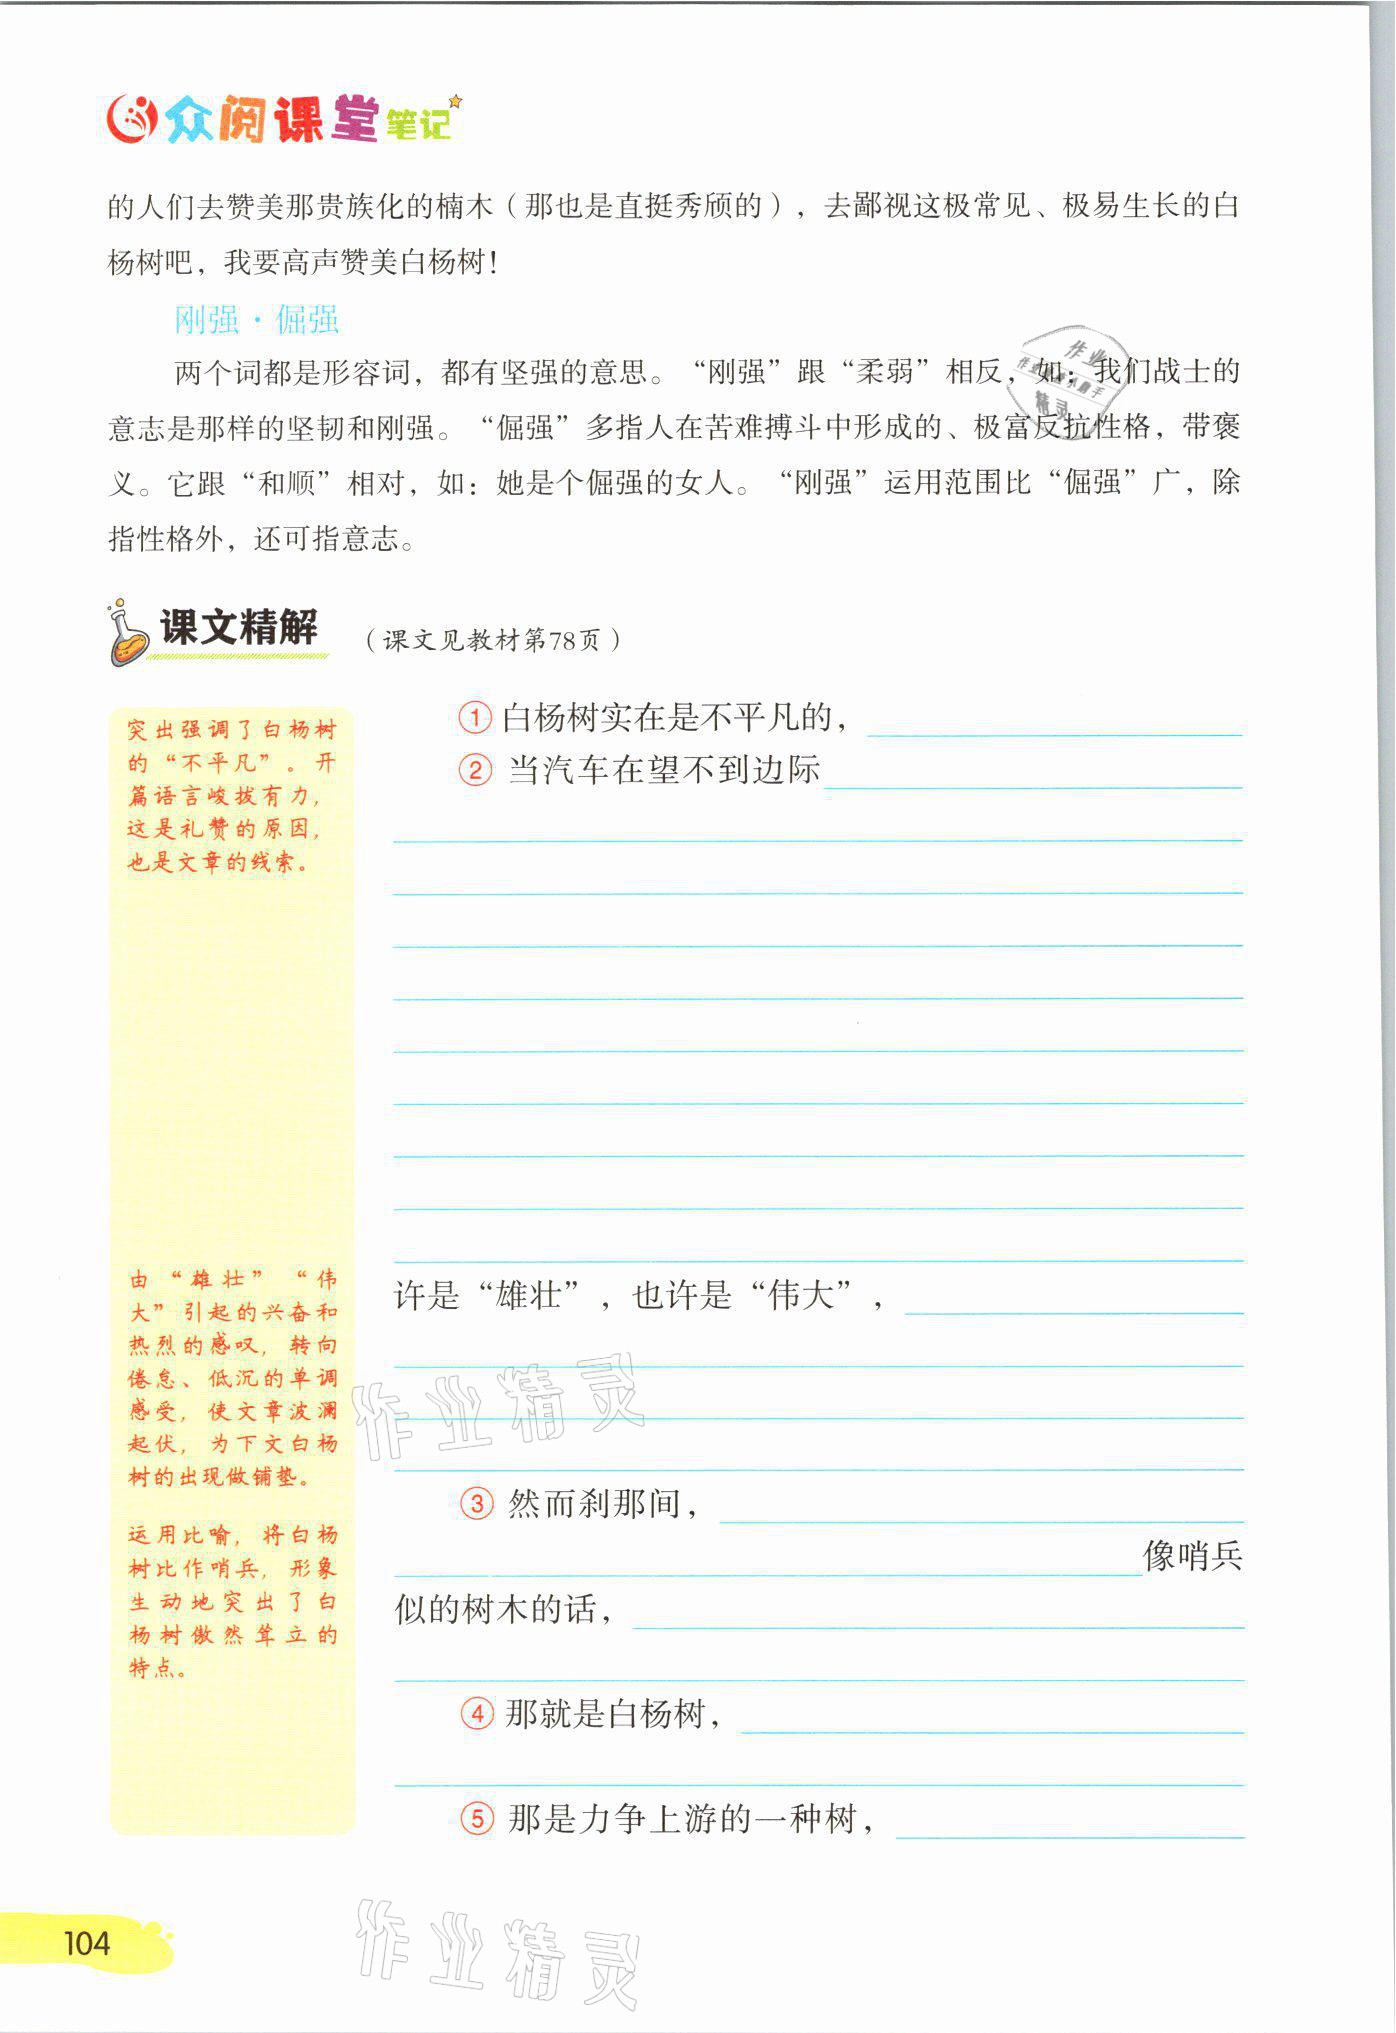 众阅课堂笔记
的人们去赞美那贵族化的楠木（那也是直挺秀颀的），去鄙视这极常见、极易生长的白
杨树吧，我要高声赞美白杨树！
刚强·倔强
两个词都是形容词，都有坚强的意思。“刚强”跟“柔弱”相反，如：我们战士的
意志是那样的坚韧和刚强。“倔强”多指人在苦难搏斗中形成的、极富反抗性格，带褒
义。它跟“和顺”相对，如：她是个倔强的女人。“刚强”运用范围比“倔强”广，除
指性格外，还可指意志。
作业
精灵
课文精解
（课文见教材第78页）
突出强调了白杨树
的“不平凡”。开
篇语言峻拔有力，
这是礼赞的原因，
也是文章的线索。
由“雄壮”“伟
大”引起的兴奋和
热烈的感叹，转向
倦怠、低沉的单调
感受，使文章波澜
起伏，为下文白杨
树的出现做铺垫。
运用比喻，将白杨
树比作哨兵，形象
生动地突出了白
杨树傲然耸立的
特点。
①白杨树实在是不平凡的，
②当汽车在望不到边际
许是“雄壮”，也许是“伟大”，
③然而刹那间，
像哨兵
似的树木的话，
④那就是白杨树，
⑤那是力争上游的一种树，
作业精灵
作业精灵
104